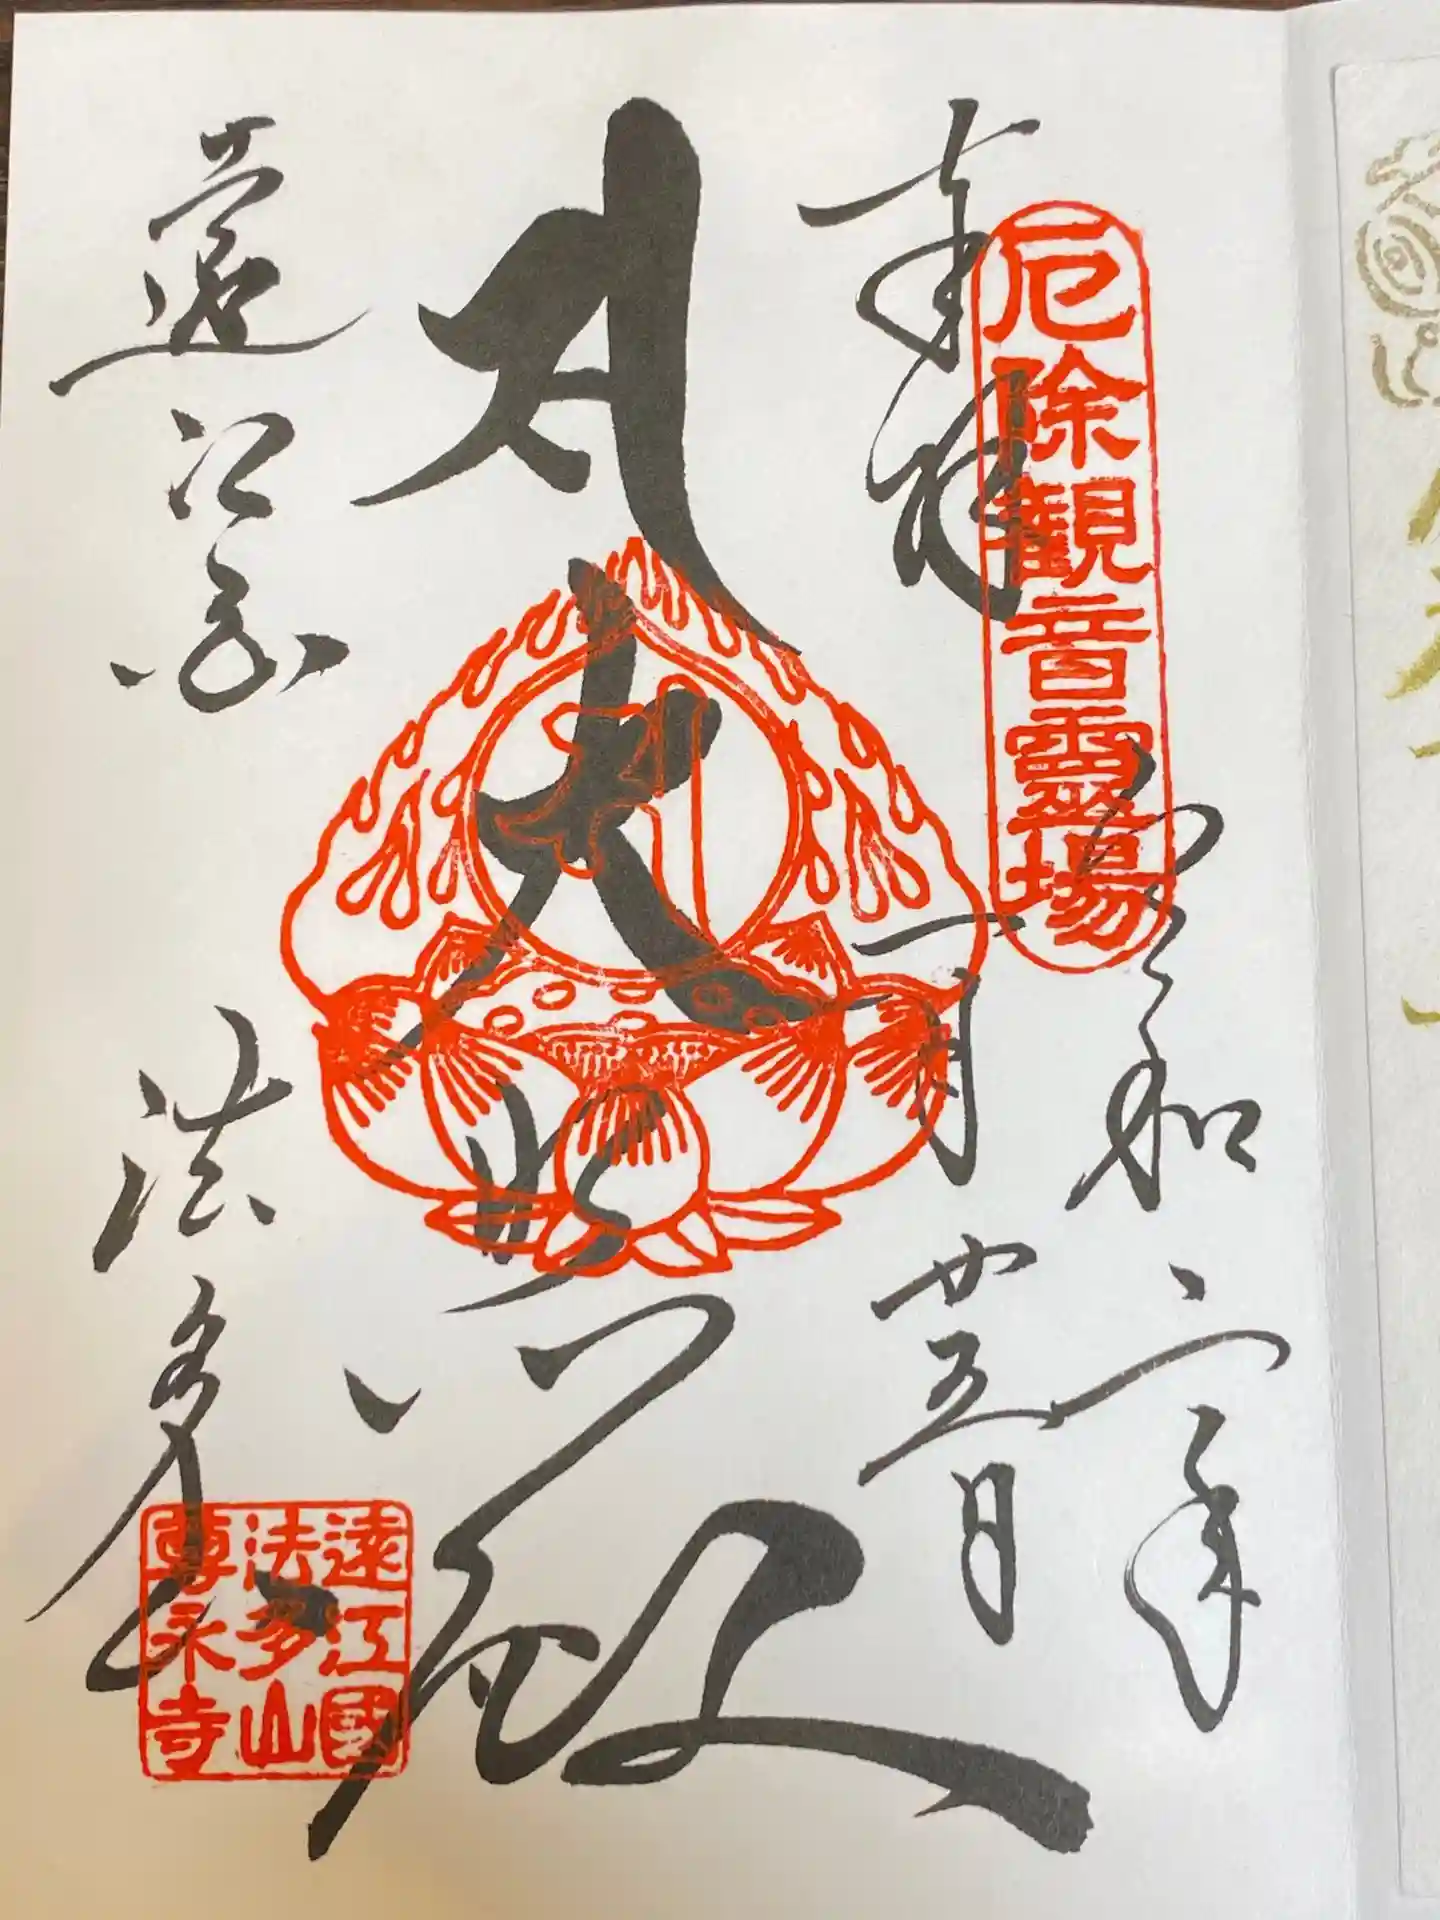 奉拝
厄除観音霊場
令和二年
二月廿五日
大悲殿
遠江国
法多山
遠江國
法多山
尊永寺